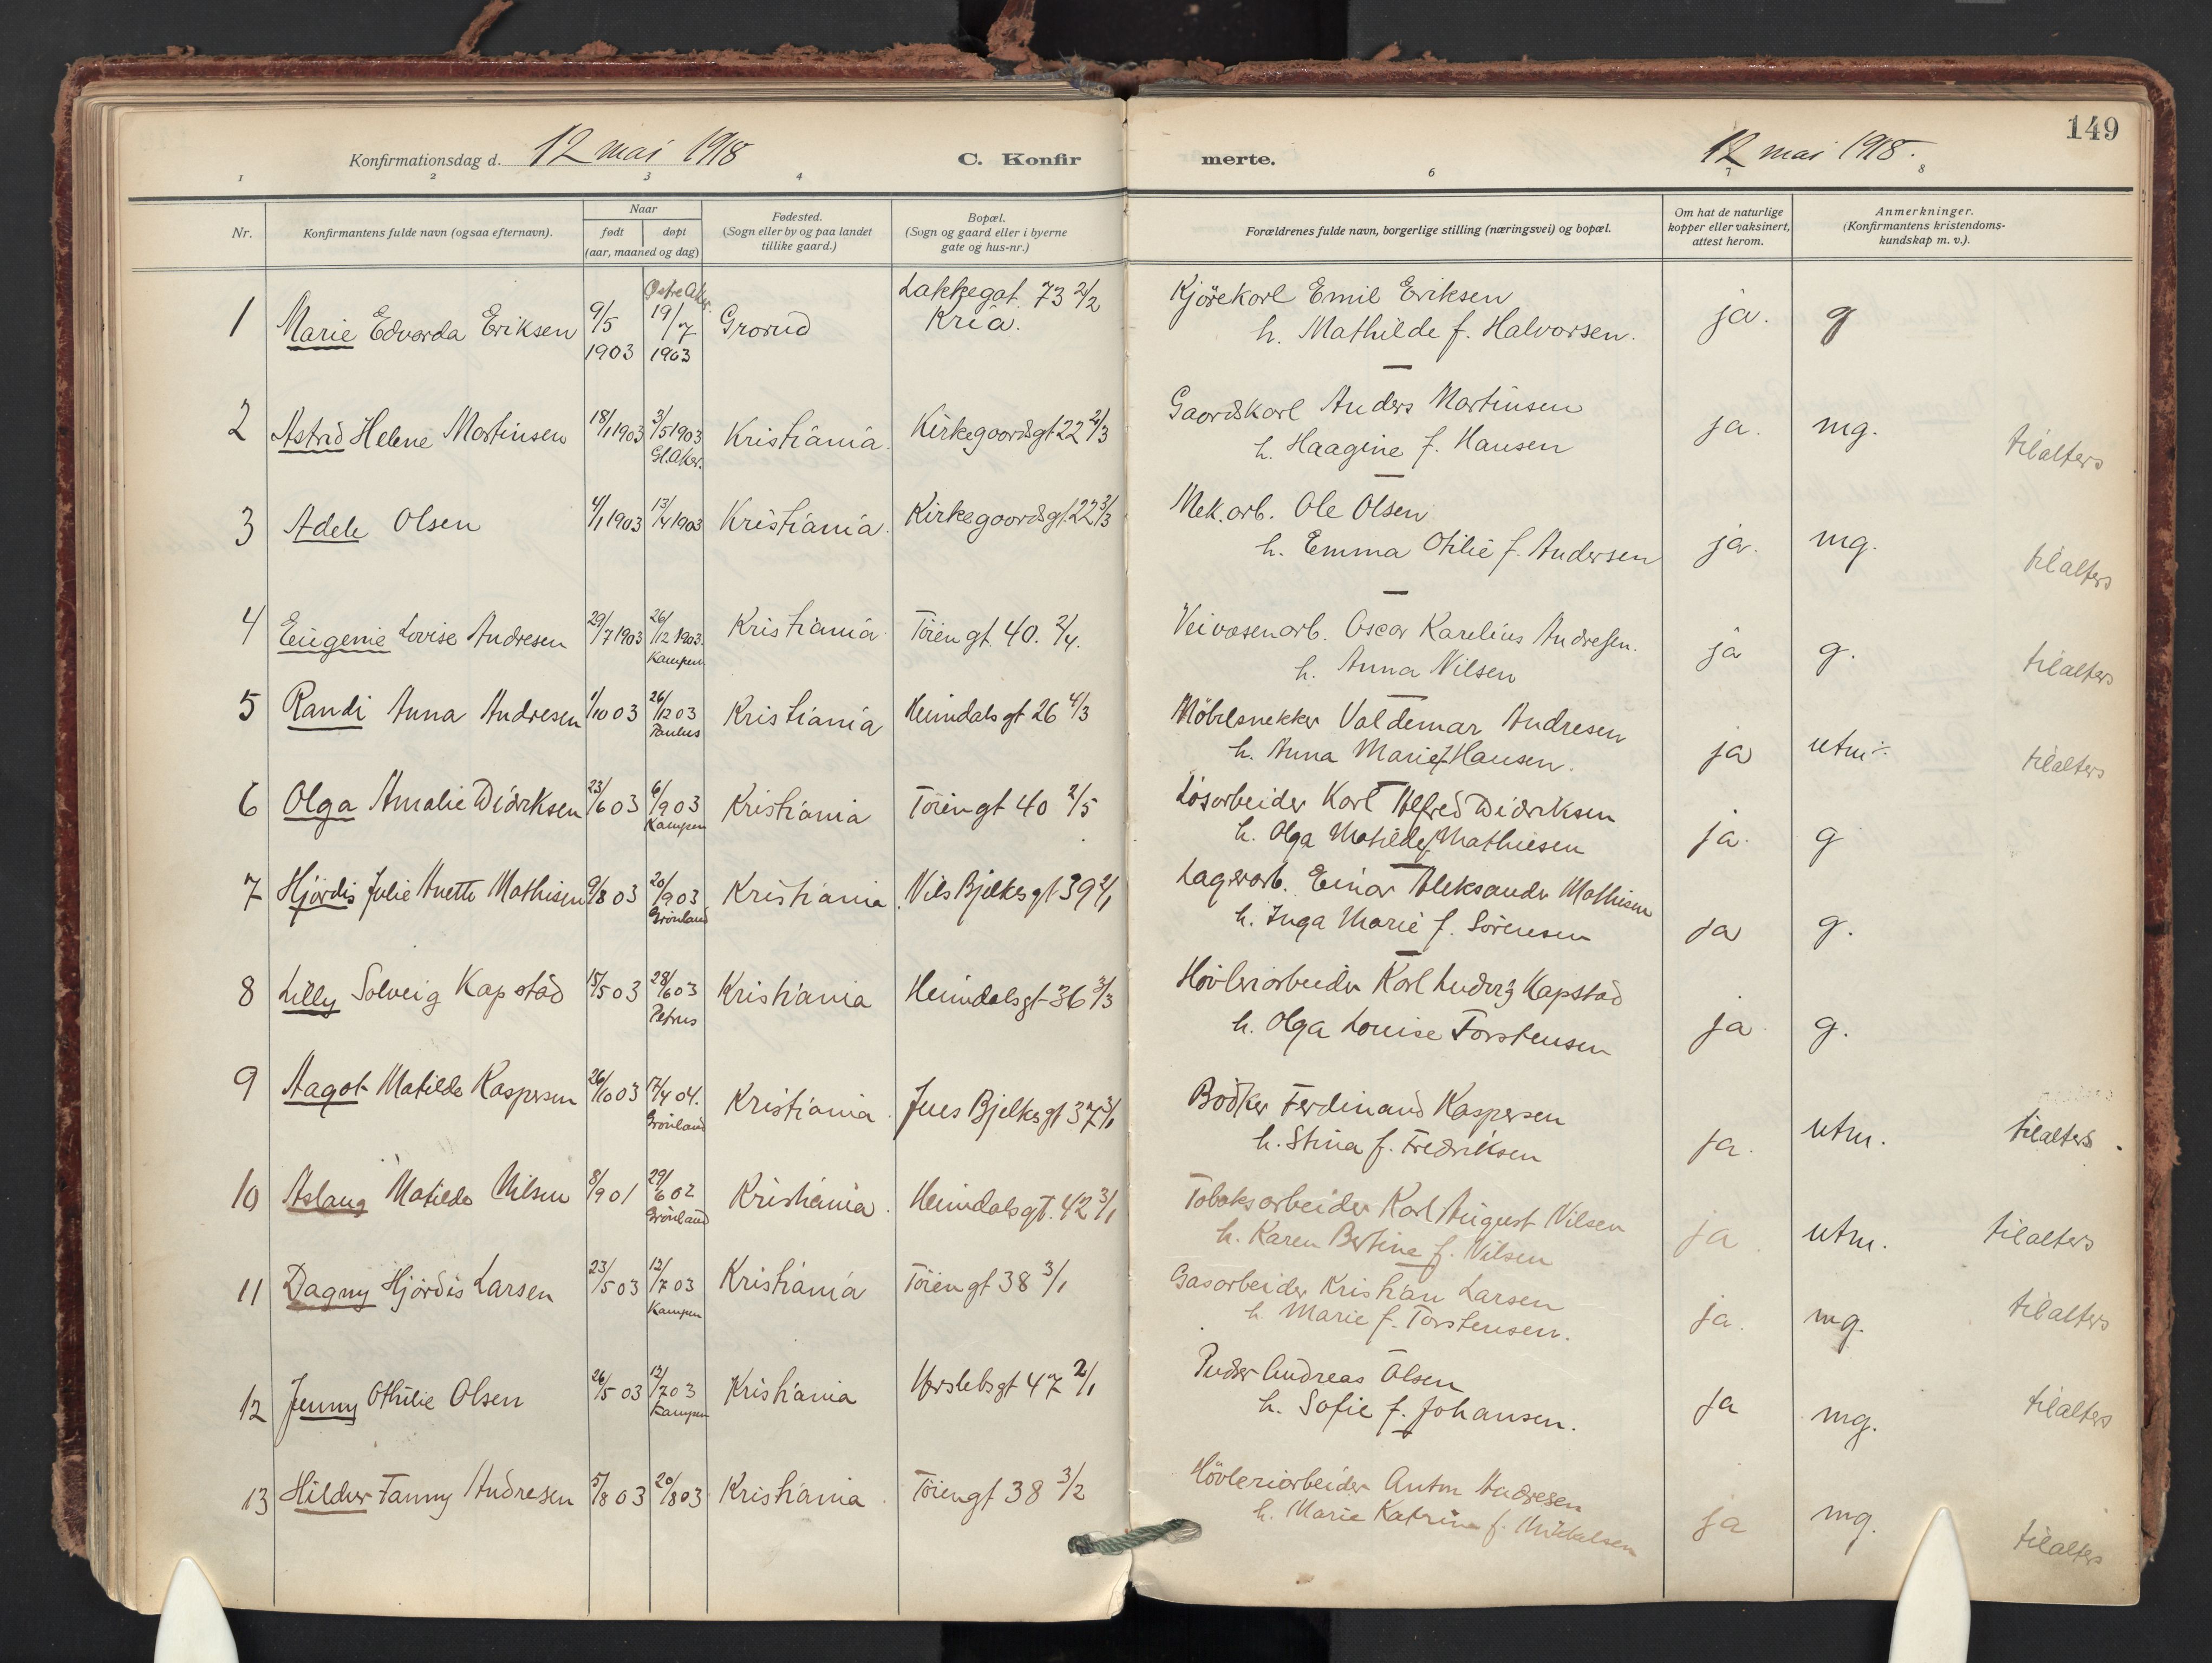 149
Konfirmationsdag d. 12 mai 1918 C. Konfirmerte. 12 mai 1918.
1 2 3 4 6 7 8
Nr. Konfirmantens fulde navn (ogsaa efternavn). Naar født døpt (aar, maaned og dag) Fødested. (Sogn eller by og paa landet tillike gaard.) Bopæl. (Sogn og gaard eller i byerne gate og hus-nr.) Forældrenes fulde navn, borgerlige stilling (næringsvei) og bopæl. Om hat de naturlige kopper eller vaksinert, attest herom. Anmerkninger. (Konfirmantens kristendoms-kundskap m. v.).
1 Marie Edvarda Eriksen 9/5 1903 Østre Aker. 19/7 1903 Grorud Lakkegat. 73 2/2 Kria. Kjörekarl Emil Eriksen ja. g
h. Mathilde f. Halvorsen.
2 Astrid Helene Martinsen 18/1 1903 3/5 1903 Gl. Aker. Kristiania. Kirkegaardsgt 22 2/3 Gaardskarl Anders Martinsen ja. mg. tilalters
h. Haagine f. Hansen
3 Adele Olsen 4/1 1903 13/4 1903 Kristiania. Kirkegaardsgt. 22 3/3 Mek. arb. Ole Olsen ja. mg. tilalters
h. Emma Otilie f. Andersen
4 Eugenie Lovise Andresen 29/7 1903 26/12 1903. Kampen Kristiania Töiengt. 40. 2/4. Veivæsenarb. Oscar Karelius Andresen. ja g. tilalters
h. Anna Nilsen
5 Randi Anna Andresen 1/10 03 26/12 03 Paulus Kristiania Heimdalsgt 26 4/3 Möbelsnekker Valdemar Andresen ja utm tilalters
h. Anna Marie f. Hansen.
6 Olga Amalie Didriksen 23/6 03 6/9 03 Kampen Kristiania Töiengt 40 2/5 Lösarbeider Karl Alfred Didriksen ja. g
h. Olga Matilde f. Mathiesen
7 Hjördis Julie Anette Mathisen 9/8 03 20/9 03 Grönland Kristiania. Nils Bjelkes gt 39 2/1 Lagerarb. Einar Aleksander Mathisen ja g.
h. Inga Marie f. Sörensen
8 Lilly Solveig Kapstad 15/5 03 28/6 03 Petrus Kristiania Heimdalsgt 36 3/3 Hövleriarbeider Karl Ludvig Kapstad ja g.
h. Olga Louise Torstensen
9 Aagot Matilde Kaspersen 26/10 03 17/4 04. Grönland Kristiania. Jens Bjelkes gt 37 3/1 Bödker Ferdinand Kaspersen ja. utm. tilalters.
h. Stina f. Fredriksen
10 Aslaug Matilde Nilsen 8/9 01 29/6 02 Grönland Kristiania. Heimdalsgt. 42 3/1 Tobaksarbeider Karl August Nilsen ja utm. tilalters
h. Karen Bertine f. Nilsen
11 Dagny Hjördis Larsen 23/5 03 12/7 03 Kampen Kristiania Töiengt 38 3/1 Gasarbeider Kristian Larsen ja. mg. tilalters
h. Marie f. Torstensen.
12 Jenny Othilie Olsen 26/5 03 12/7 03 Kampen Kristiania Herslebsgt 47 2/1 Pudser Andreas Olsen ja mg. tilalters
h. Sofie f. Johansen.
13 Hildur Fanny Andresen 5/8 03 20/8 03 Kristiania. Töiengt 38 3/2 Hövleriarbeider Anton Andresen ja mg. tilalters
h. Marie Katrine f. Mikkelsen